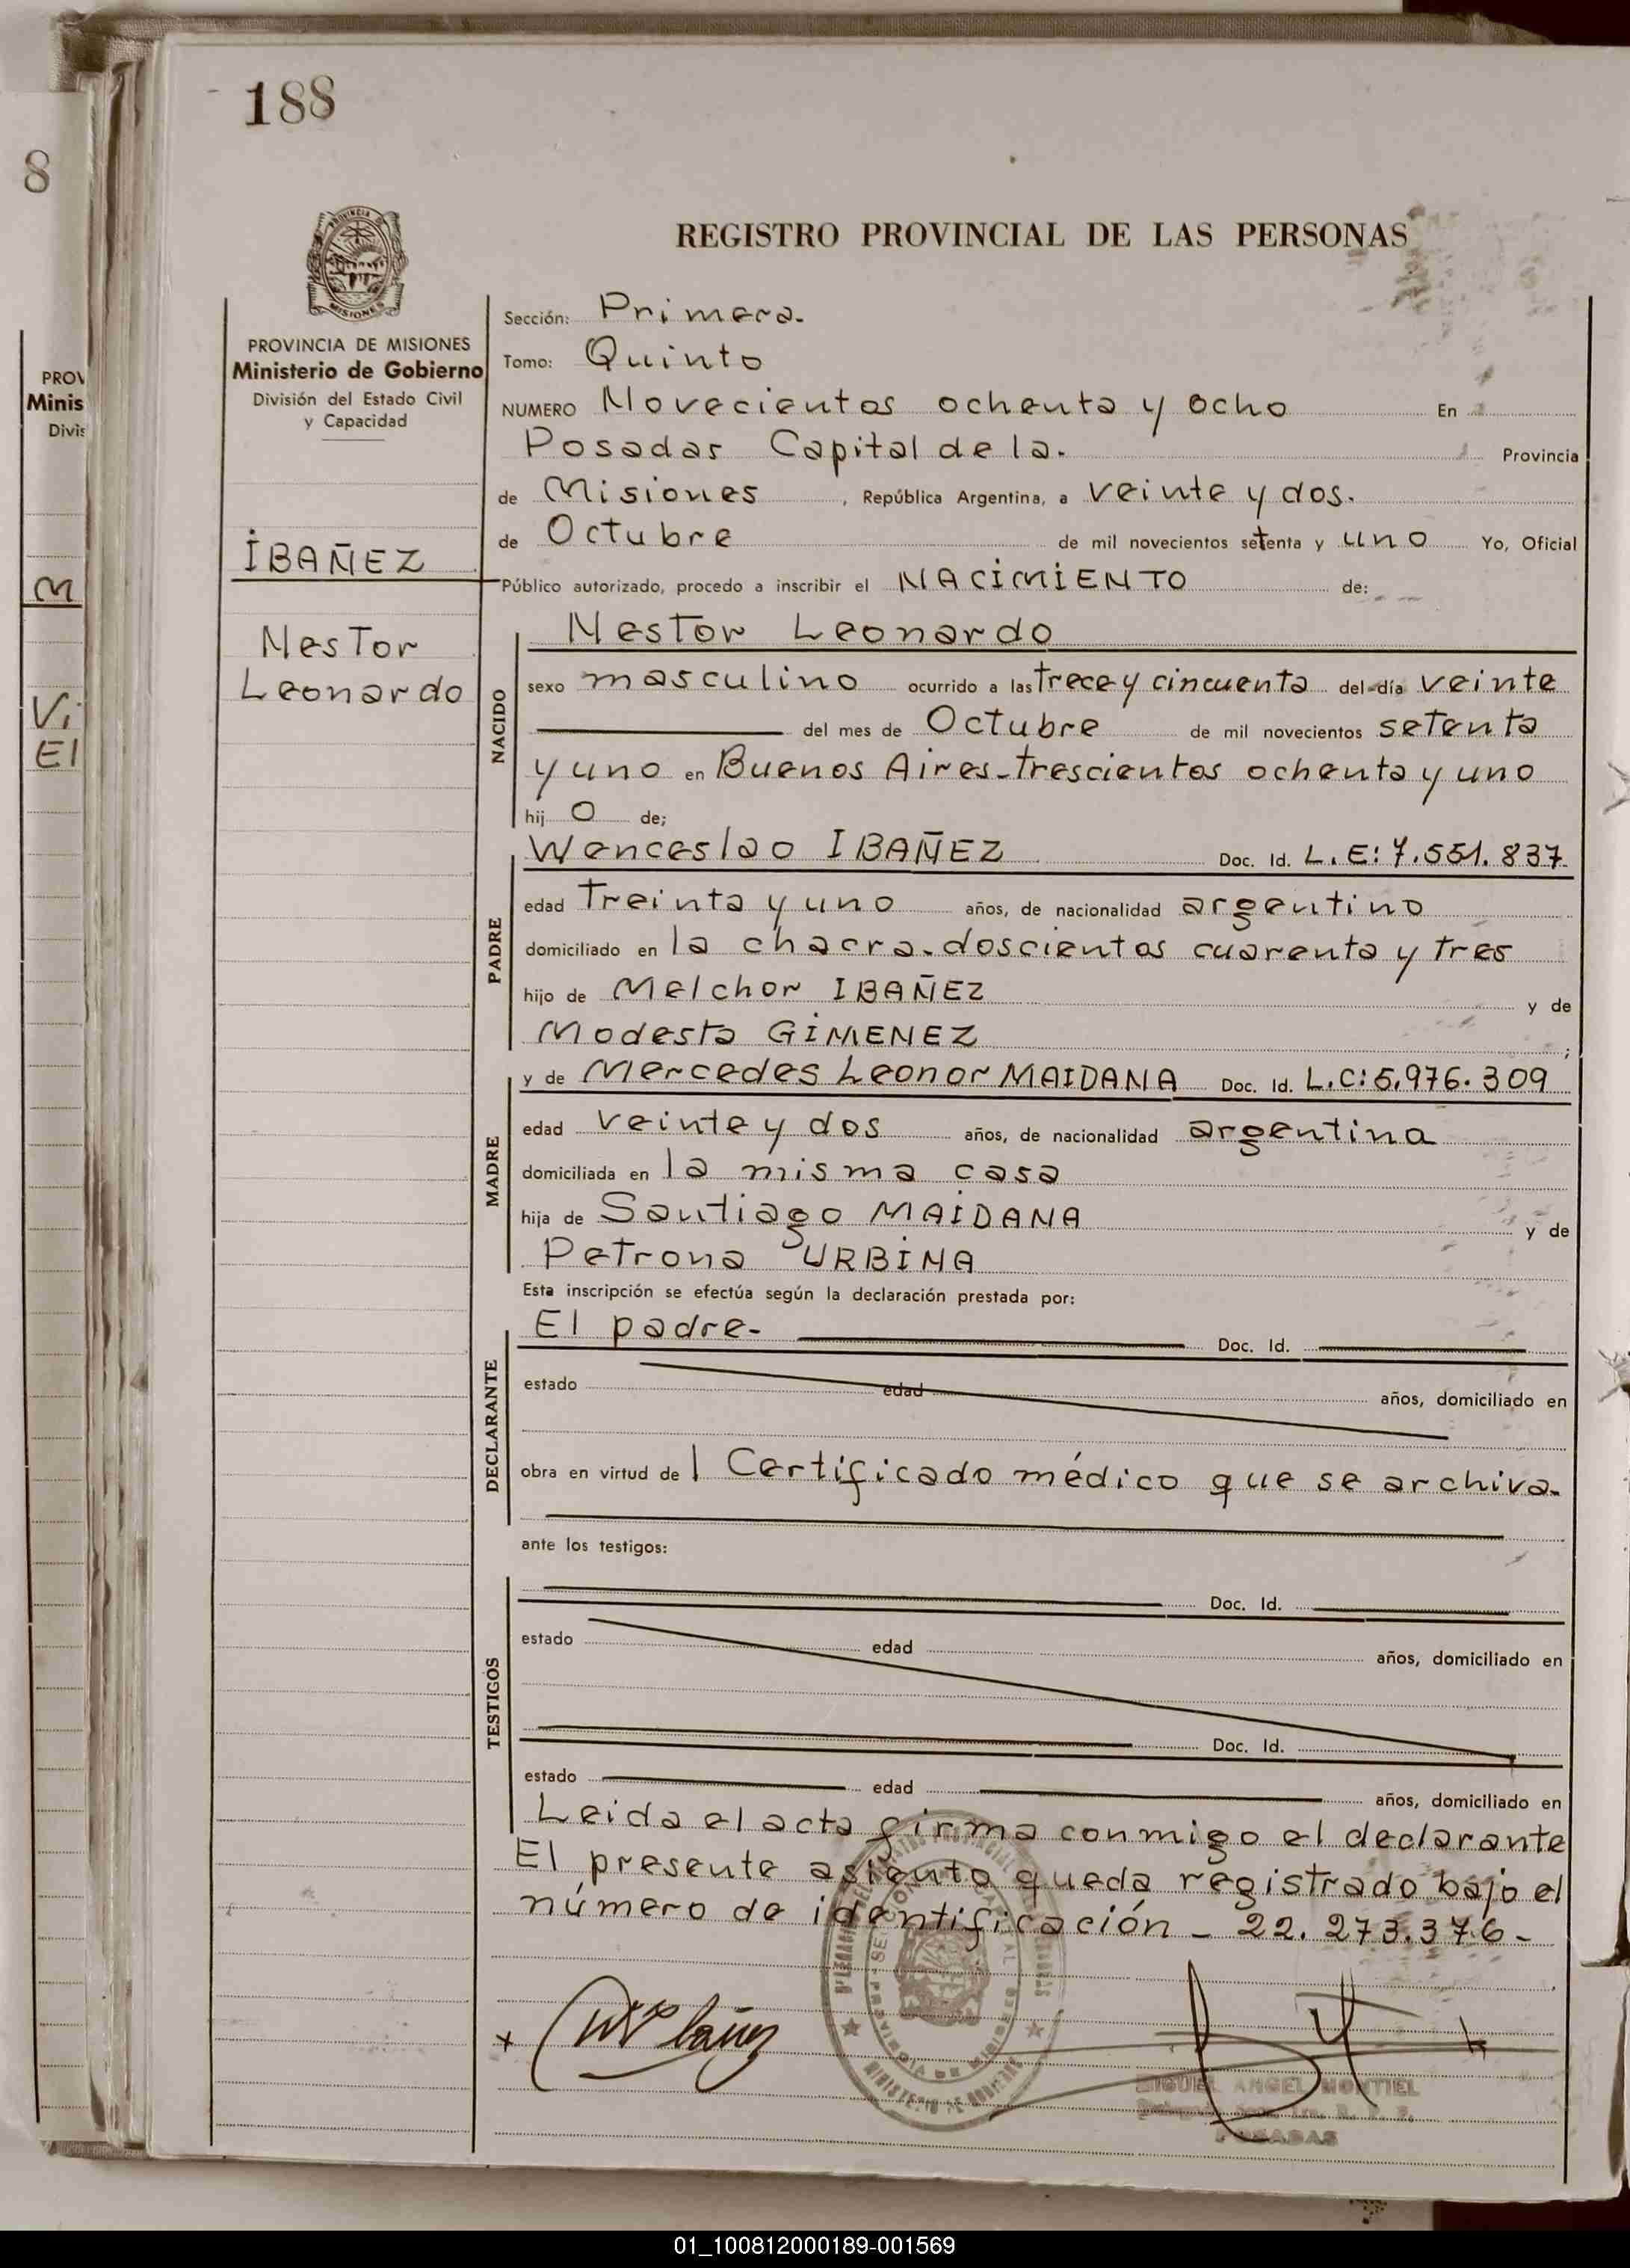 188
8
PROVINCIA DE MISIONES
Ministerio de Gobierno
División del Estado Civil
y Capacidad
IBAÑEZ
Nestor
Leonardo
PROV
Minis
Divis
M
Vi
El
REGISTRO PROVINCIAL DE LAS PERSONAS
Sección: Primera.
Tomo: Quinto
NUMERO Novecientos ochenta y ocho En
Posadas Capital de la. Provincia
de Misiones, República Argentina, a veinte y dos.
de Octubre de mil novecientos setenta y uno Yo, Oficial
Público autorizado, procedo a inscribir el NACIMIENTO de:
NACIDO
Nestor Leonardo
sexo masculino ocurrido a las trece y cincuenta del día veinte
del mes de Octubre de mil novecientos setenta
y uno en Buenos Aires-trescientos ochenta y uno
hijo de;
PADRE
Wenceslao IBAÑEZ Doc. Id. L.E: 7.551.837
edad Treinta y uno años, de nacionalidad argentino
domiciliado en la chacra-doscientos cuarenta y tres
hijo de Melchor IBAÑEZ y de
Modesta GIMENEZ;
MADRE
y de Mercedes Leonor MAIDANA Doc. Id. L.C: 5.976.309
edad veinte y dos años, de nacionalidad argentina
domiciliada en la misma casa
hija de Santiago MAIDANA y de
Petrona URBINA
Esta inscripción se efectúa según la declaración prestada por:
DECLARANTE
El padre- Doc. Id.
estado edad años, domiciliado en
obra en virtud del Certificado médico que se archiva.
ante los testigos:
TESTIGOS
Doc. Id.
estado edad años, domiciliado en
Doc. Id.
estado edad años, domiciliado en
Leida el acta firma conmigo el declarante
El presente asiento queda registrado bajo el
número de identificación - 22.273.376-
MIGUEL ANGEL MONTIEL
POSADAS
01_100812000189-001569